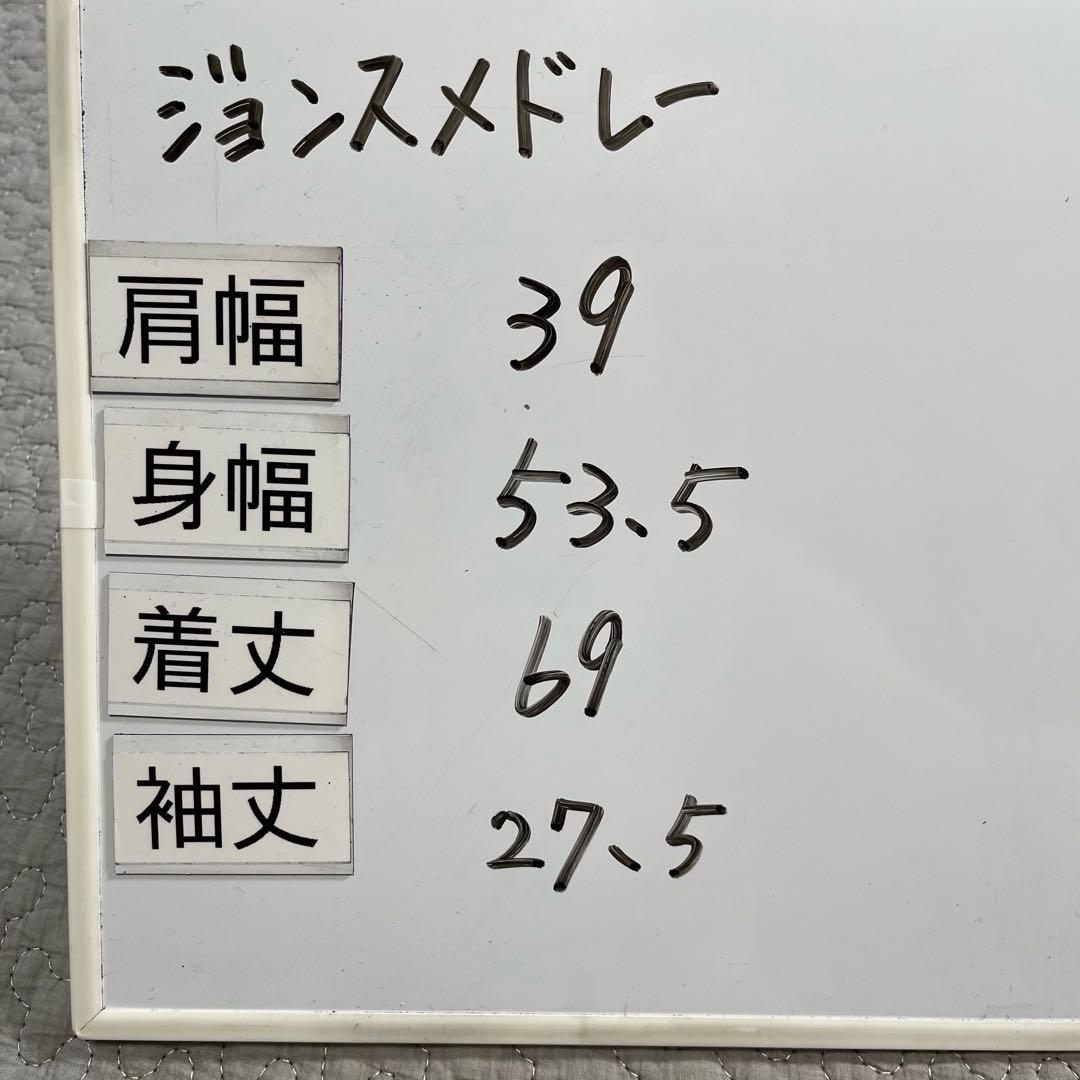 ジョンスメドレー
肩幅 39
身幅 53.5
着丈 69
袖丈 27.5